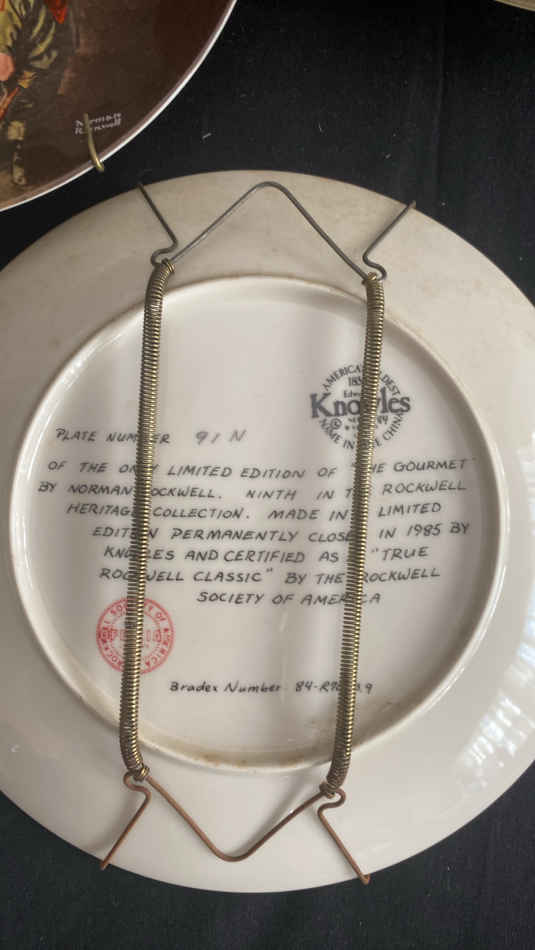 Norman
Rockwell
AMERICA'S OLDEST
Knowles
NAME IN FINE CHINA
PLATE NUMBER 91 N
OF THE ONLY LIMITED EDITION OF "THE GOURMET"
BY NORMAN ROCKWELL. NINTH IN THE ROCKWELL
HERITAGE COLLECTION. MADE IN LIMITED
EDITION PERMANENTLY CLOSED IN 1985 BY
KNOWLES AND CERTIFIED AS "TRUE
ROCKWELL CLASSIC" BY THE ROCKWELL
SOCIETY OF AMERICA
ROCKWELL SOCIETY OF AMERICA
Bradex Number 84-R9